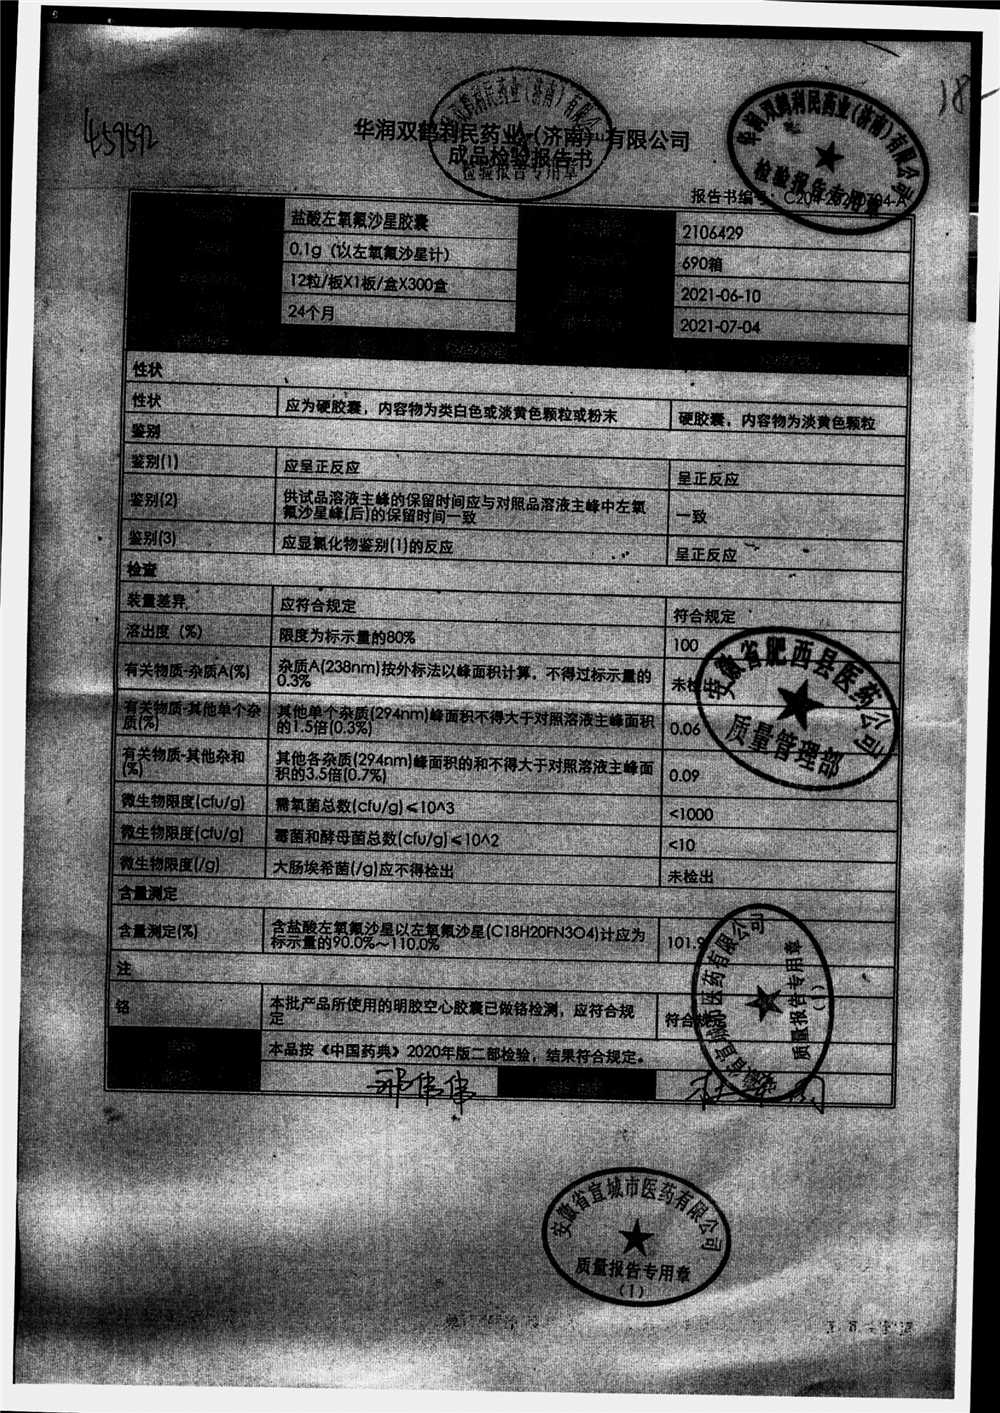 459592
18
华润双鹤利民药业（济南）有限公司
成品检验报告书
检验报告专用章
华润双鹤利民药业（济南）有限公司
检验报告专用章
报告书编号：
盐酸左氧氟沙星胶囊
2106429
0.1g（以左氧氟沙星计）
690箱
12粒/板X1板/盒X300盒
2021-06-10
24个月
2021-07-04
性状
性状
应为硬胶囊，内容物为类白色或淡黄色颗粒或粉末
硬胶囊，内容物为淡黄色颗粒
鉴别
鉴别(1)
应呈正反应
呈正反应
鉴别(2)
供试品溶液主峰的保留时间应与对照品溶液主峰中左氧
氟沙星峰(后)的保留时间一致
一致
鉴别(3)
应显氯化物鉴别(1)的反应
呈正反应
检查
装量差异
应符合规定
符合规定
溶出度（%）
限度为标示量的80%
100
有关物质-杂质A(%)
杂质A(238nm)按外标法以峰面积计算，不得过标示量的
0.3%
未检
有关物质-其他单个杂
质(%)
其他单个杂质(294nm)峰面积不得大于对照溶液主峰面积
的1.5倍(0.3%)
0.06
有关物质-其他杂和
(%)
其他各杂质(294nm)峰面积的和不得大于对照溶液主峰面
积的3.5倍(0.7%)
0.09
微生物限度(cfu/g)
需氧菌总数(cfu/g)≤10^3
<1000
微生物限度(cfu/g)
霉菌和酵母菌总数(cfu/g)≤10^2
<10
微生物限度(/g)
大肠埃希菌(/g)应不得检出
未检出
含量测定
含量测定(%)
含盐酸左氧氟沙星以左氧氟沙星(C18H20FN3O4)计应为
标示量的90.0%～110.0%
101.9
注
铬
本批产品所使用的明胶空心胶囊已做铬检测，应符合规
定
符合
本品按《中国药典》2020年版二部检验，结果符合规定。
邢伟伟
安徽省肥西县医药公司
质量管理部
安徽省宣城市医药有限公司
质量报告专用章
(1)
安徽省宣城市医药有限公司
质量报告专用章
(1)